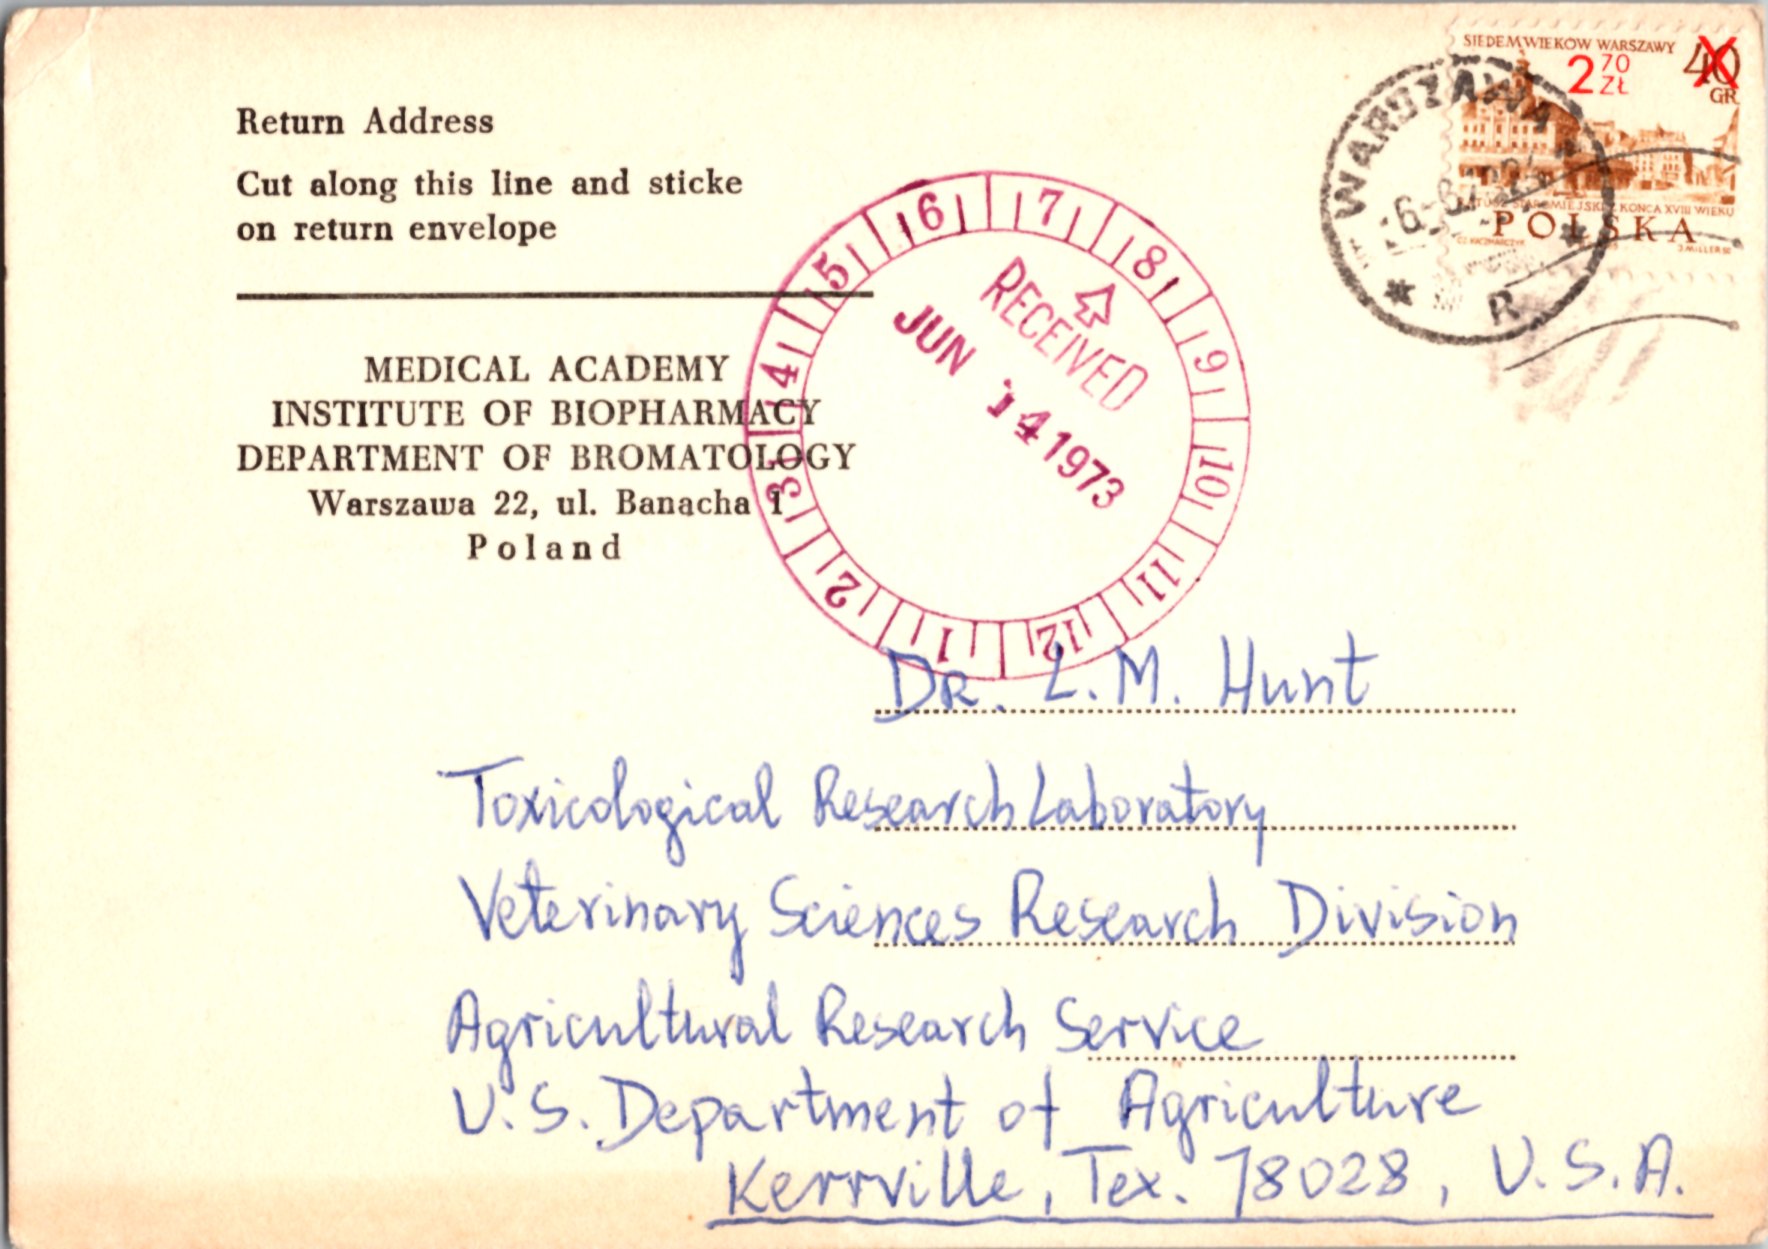 Return Address
Cut along this line and sticke
on return envelope
MEDICAL ACADEMY
INSTITUTE OF BIOPHARMACY
DEPARTMENT OF BROMATOLOGY
Warszawa 22, ul. Banacha 1
Poland
SIEDEM WIEKÓW WARSZAWY
40
GR
2 70
ZŁ
KOŃCA XVIII WIEKU
POLSKA
J. MILLER SC.
WARSZAWA
R
1 2 3 4 5 6 7 8 9 10 11 12
RECEIVED
JUN 14 1973
DR. L. M. Hunt
Toxicological Research Laboratory
Veterinary Sciences Research Division
Agricultural Research Service
U.S. Department of Agriculture
Kerrville, Tex. 78028, U.S.A.